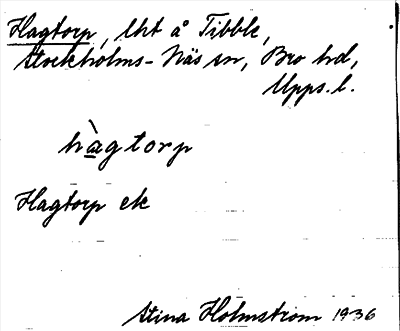 Hagtorp, lht å Tibble,
Stockholms-Näs sn, Bro hd,
Upps. l.
hàgtorp
Hagtorp ek
Stina Holmström 1936